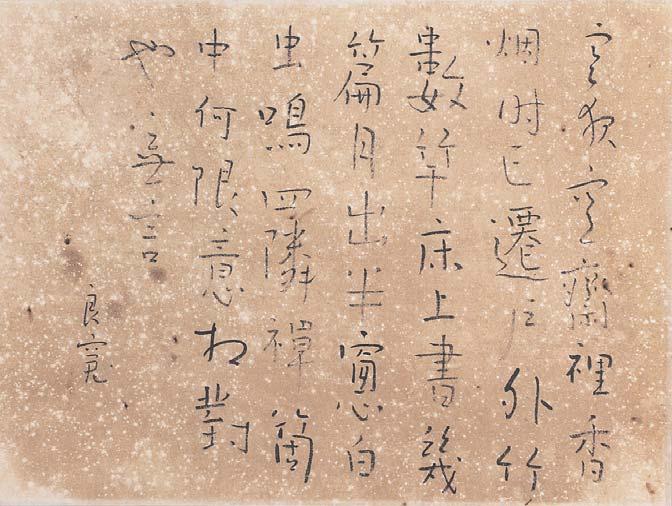 寒夜空齋裡香
烟时已遷戶外竹
數竿床上書幾
篇月出半窻白
虫鳴四隣禪箇
中何限意相對
也無言
良寛